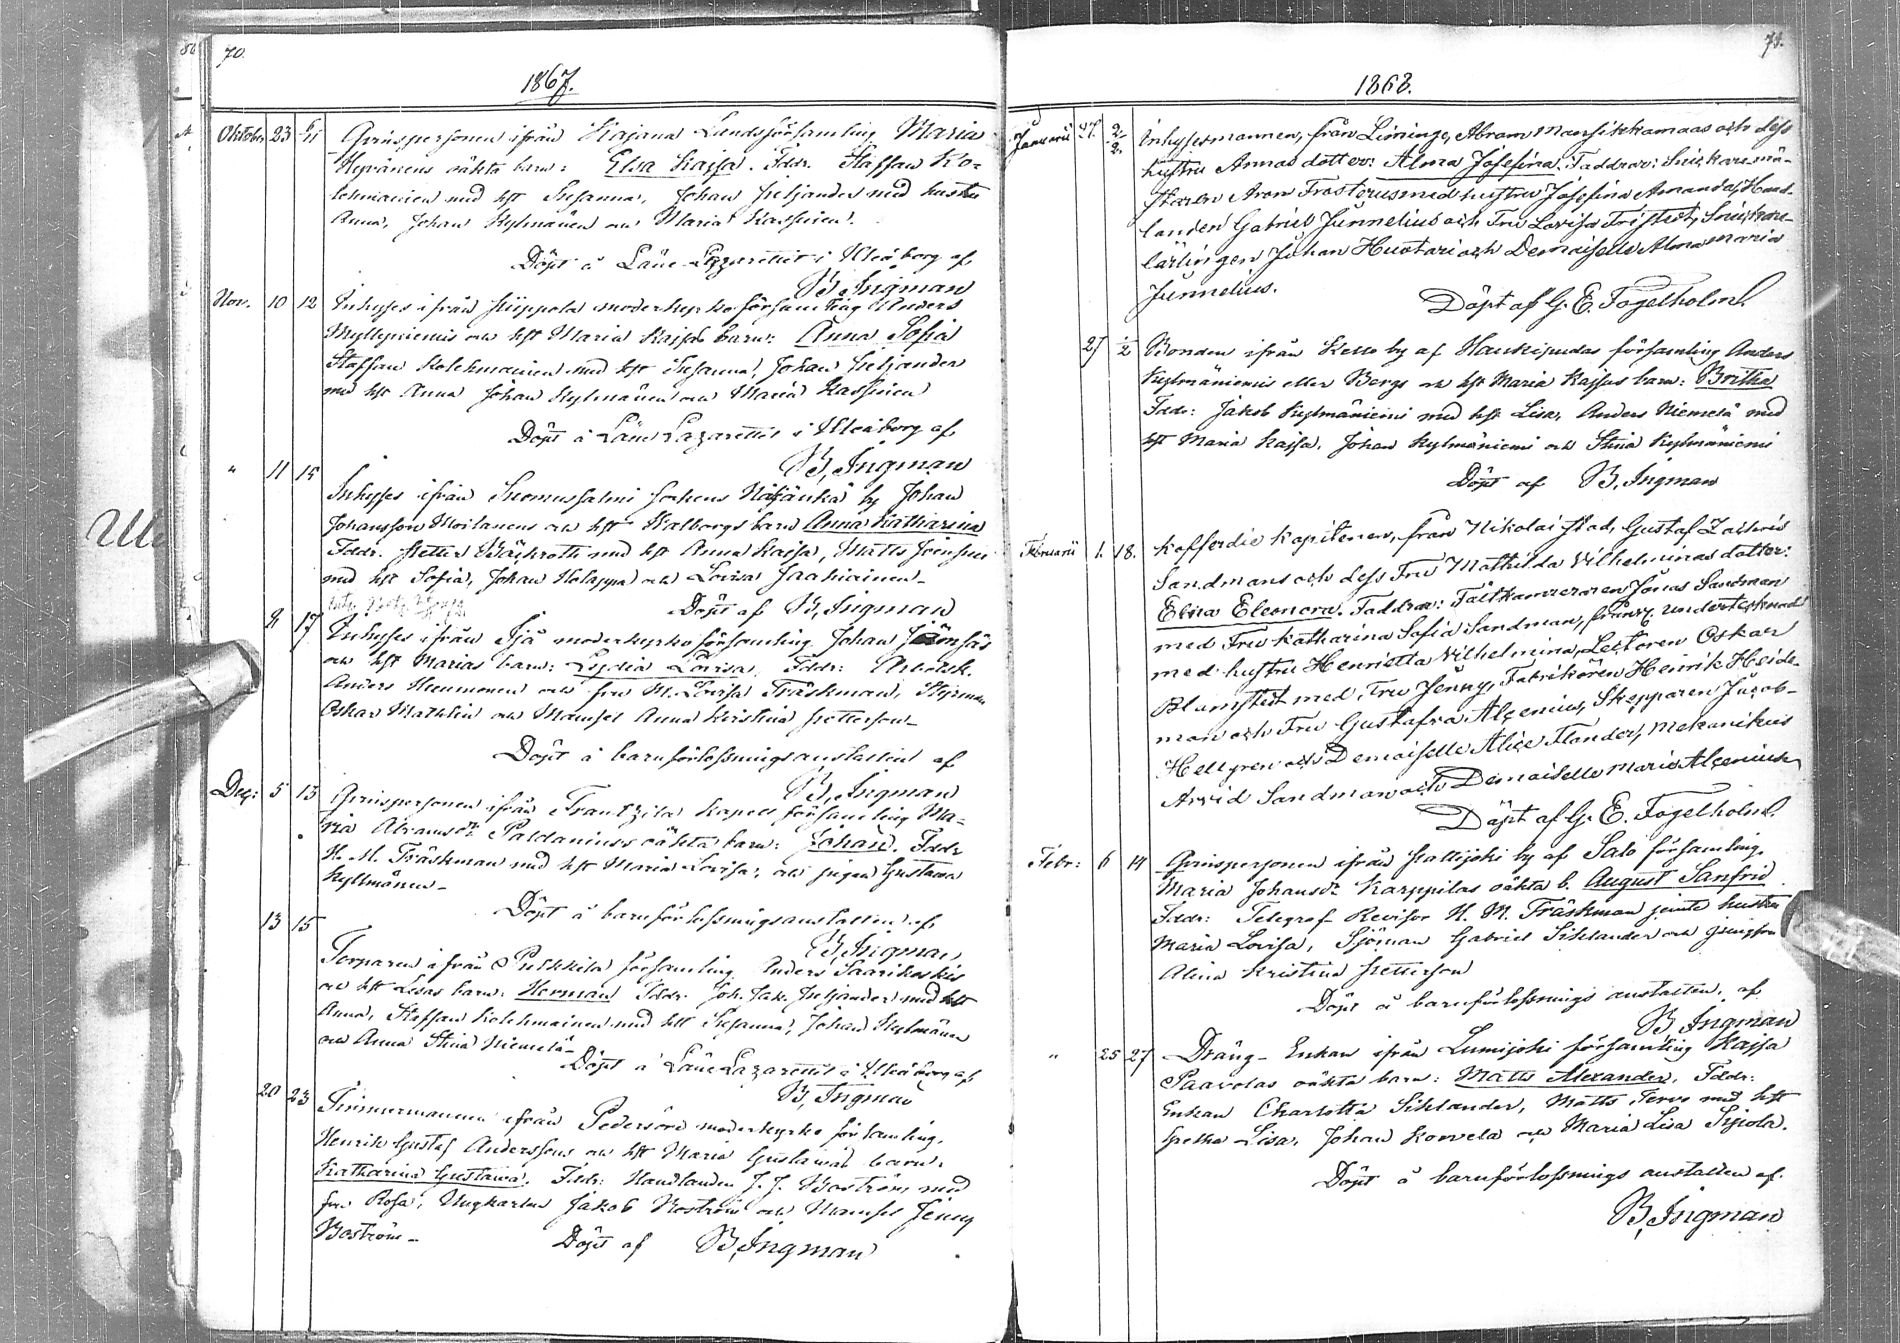 70.
1867.
Oktober 23 6/11 Qvinspersonen ifrån Kajana Landsförsamling Maria
Hyvänens oäkta barn: Elsa Kajsa. Fddr. Staffan Ko-
lehmainen med hst Susanna, Johan Siljander med hustru
Anna, Johan Kylmänen och Maria Kassinen.
Döpt å Läns Lazarettet i Uleåborg af
B, Ingman
Nov. 10 12 Inhyses ifrån Piippola moderkyrkoförsamling Anders
Myllyniemis och hst Maria Kajsas barn: Anna Sofia
Staffan Kolehmainen med hst Susanna, Johan Siljander
med hst Anna Johan Kylmänen och Maria Kassinen
Döpt å Läns Lazarettet i Uleåborg af
B, Ingman
" 11 15 Inhyses ifrån Suomussalmi sockens Näljänkä by Johan
Johansson Moilanens och hst Walborgs barn Anna Katharina
Fddr. Petter Bäckroth med hst Anna Kajsa, Matts
med hst Sofia, Johan Holappa och Lovisa Jaakiainen
Döpt af B, Ingman
17 Inhyses ifrån Ijå moderkyrkoförsamling Johan
och hst Marias barn: Lydia Lovisa, Fddr:
Anders Heumonen och fru M. Lovisa Träskman, Styrman
Oskar Mathlin och Mamsel Anna Kristina Petterson
Döpt å barnförlossningsanstalten af
B, Ingman
Dec: 5 13 Qvinspersonen ifrån Frantzila kapell församling Ma-
ria Abramsdr Paldanius oäkta barn: Johan. Fddr
H. M. Träskman med hst Maria Lovisa, och pigan Gustava
Kyllmänen
Döpt å barnförlossningsanstalten af
B, Ingman
13 15 Torparen ifrån Pulkkila församling Anders Saarikoskis
och hst Lisas barn: Herman Fddr. Joh. Jak. Siljander med hst
Anna, Staffan Kolehmainen med hst Susanna, Johan Kylmänen
och Anna Stina Niemelä
Döpt å Läns Lazarettet i Uleåborg af
B, Ingman
20 23 Timmermannen ifrån Pedersöre moderkyrko församling,
Henrik Gustaf Anderssons och hst Maria Gustavas barn:
Katharina Gustava. Fddr: Handlanden J. J. Boström, med
fru Rosa, Ungkarlen Jakob Boström och Mamsel Jenny
Boström
Döpt af B, Ingman
71.
1868.
Januarii 27. 2/2. Inhysesmannen, från Limingo, Abram Mansikkamaas och dess
hustru Annas dotter: Alma Josefina. Faddrar: Snickaremä-
staren Aron Frosterus med hustru Josefina Amanda, Hand-
landen Gabriel Junnelius och Fru Lovisa Tristedt, Snickare-
lärlingen Johan Huotari och Demoiselle Alma Maria
Junnelius.
Döpt af G. E. Fogelholm.
27 1/2 Bonden ifrån Kello by af Haukipudas församling Anders
Kylmäniemis eller Bergs och hst Maria Kajsas barn: Britha
Fddr: Jakob Kylmäniemi med hst Lisa, Anders Niemelä med
hst Maria Kajsa, Johan Kylmäniemi och Stina Kylmäniemi
Döpt af B, Ingman
Februarii 1. 18. Kofferdie Kapitenen, från Nikolai stad, Gustaf Zachris
Sandmans och dess Fru Mathilda Vilhelminas dotter:
Elina Eleonora. Faddrar: Fältkamreraren Jonas Sandman
med Fru Katharina Sofia Sandman, undertecknad
med hustru Henrietta Vilhelmina, Lektoren Oskar
Blomstedt med Fru Jenny, Fabrikören Henrik Heide-
man och Fru Gustafva Alcenius, Skepparen Jacob
Hellgren och Demoiselle Alice Flander, Mekanikus
Arvid Sandman och Demoiselle Maria Alcenius
Döpt af G. E. Fogelholm.
Febr: 6 14 Qvinspersonen ifrån Pattijoki by af Salo församling.
Maria Johansdr Karppilas oäkta b. August Sanfrid
Fddr: Telegraf Revisor H. M. Träskman jemte hustru
Maria Lovisa, Sjöman Gabriel Siklander och
Alina Kristina Petterson
Döpt å barnförlossnings anstalten, af
B, Ingman
" 25 27 Dräng-Enkan ifrån Lumijoki församling Kajsa
Paavolas oäkta barn: Matts Alexander. Fddr:
Enkan Charlotta Siklander, Matts Tervo med hst
Greta Lisa, Johan Korvela och Maria Lisa Sipola.
Döpt å barnförlossnings anstalten af.
B, Ingman